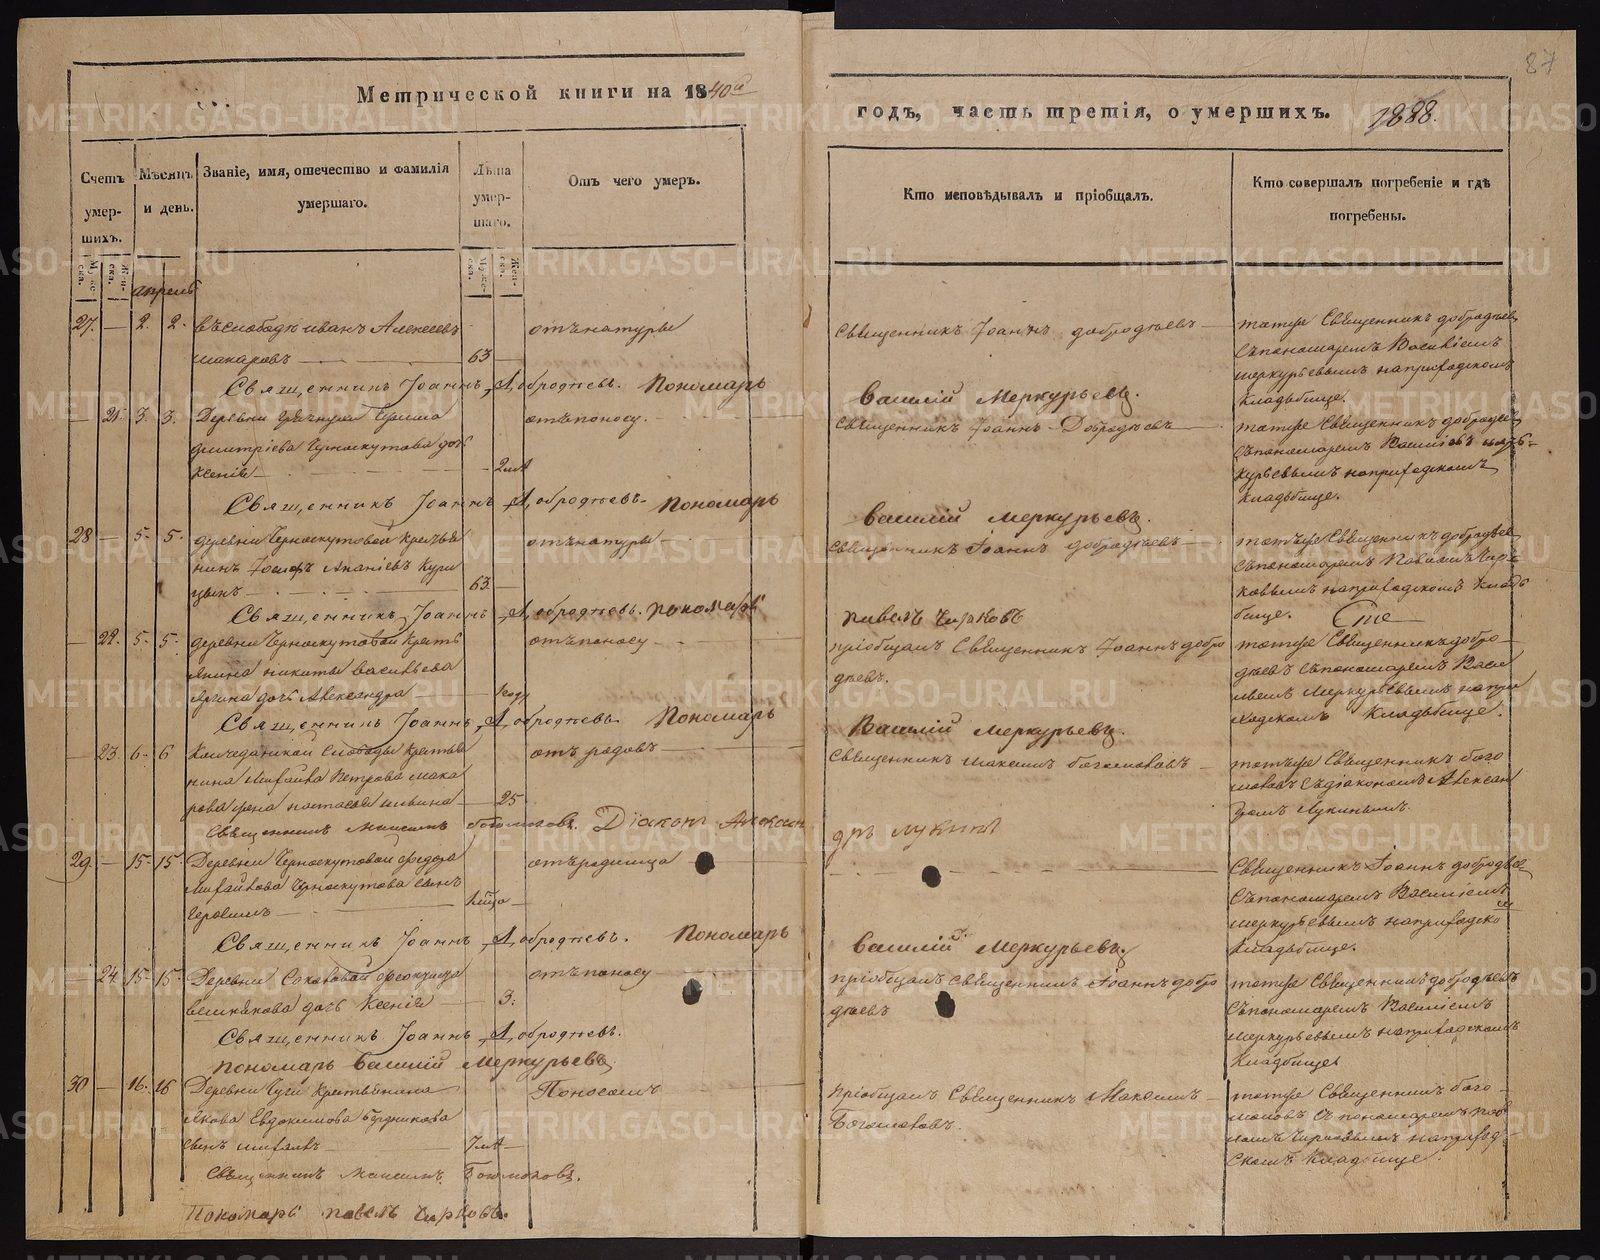 87
Метрической книги на 1840й
годъ, часть третія, о умершихъ. 1888.
Счетъ умер-шихъ.
Мѣсяцъ и день.
Званіе, имя, отечество и фамилія умершаго.
Лѣта умер-шаго.
Отъ чего умеръ.
Кто исповѣдывалъ и пріобщалъ.
Кто совершалъ погребеніе и гдѣ погребены.
Муже-ска.
Жен-ска.
Муже-ска.
Жен-ска.
апрель
27. — 2. 2. въ слободѣ иванъ Алексеевъ
макаровъ — 63 —
отъ натуры
Священникъ Іоаннъ добродѣевъ —
тотже Священникъ добродѣев
съ пономаремъ Василіемъ
меркурьевымъ на приходскомъ
кладбище.
Священникъ Іоаннъ Добродѣевъ. Пономарь Василій Меркурьевъ.
— 21. 3. 3. Деревни
димитріева Черноскутова дочь
Ксенія — 2 лѣт
отъ поносу.
Священникъ Іоаннъ Добродѣевъ —
тотже Священникъ добродѣев
съ пономаремъ Василіемъ мер-
курьевымъ на приходскомъ
кладбище.
Священникъ Іоаннъ Добродѣевъ. Пономарь Василій Меркурьевъ.
28 — 5. 5. деревни Черноскутовой крестья
нинъ Іосифъ Ананіевъ
63
отъ натуры
Священникъ Іоаннъ добродѣевъ —
тотъже Священникъ добродѣев
съ пономаремъ Павломъ Чир
ковымъ на приходскомъ кладъ
бище.
Священникъ Іоаннъ Добродѣевъ. пономарь павелъ Чирковъ
— 22. 5. 5. деревни Черноскутовой кресть
янина никиты васильева
дочь Александра — 1 году
отъ поносу —
пріобщалъ Священникъ Іоаннъ добро
дѣевъ.
тотже Священникъ добро-
дѣевъ съ пономаремъ Васи
льемъ Меркурьевымъ на при
ходскомъ кладбище.
Священникъ Іоаннъ Добродѣевъ Пономарь Василій Меркурьевъ.
— 23. 6. 6 Колчеданской слободы крестья
нина Михаила Петрова Мака
рова жена настасья — 25
отъ родовъ —
Священникъ максимъ богомоловъ —
тотъже Священникъ бого
моловъ съ діакономъ Алексан
дромъ Лукинымъ.
Священникъ Максимъ богомоловъ. Діаконъ Александръ лукинъ
29. — 15. 15. Деревни Черноскутовой федора
Михайлова Черноскутова сынъ
отъ родимца
Священникъ Іоаннъ добродѣев
съ пономаремъ Василіемъ
меркурьевымъ на приходско
м
кладбище.
Священникъ Іоаннъ Добродѣевъ. Пономарь Василій Меркурьевъ.
— 24. 15. 15. Деревни Соколовой
дочь Ксенія — 3.
отъ поносу —
пріобщалъ Священникъ Іоаннъ добро
дѣевъ
тотже Священникъ добродѣевъ
съ пономаремъ Василіемъ
меркурьевымъ на приходскомъ
кладбище.
Священникъ Іоаннъ Добродѣевъ.
пономарь Василій Меркурьевъ
30 — 16. 16 Деревни Крестьянина
Якова Евдокимова Бердникова
сынъ — 7 лѣт
Поносомъ
пріобщалъ Священникъ Максимъ —
Богомоловъ.
тотже Священникъ бого-
моловъ съ пономаремъ пав
ломъ Чирковымъ на приход-
скомъ кладбище.
Священникъ Максимъ Богомоловъ.
Пономарь павелъ Чирковъ.
METRIKI.GASO-URAL.RU